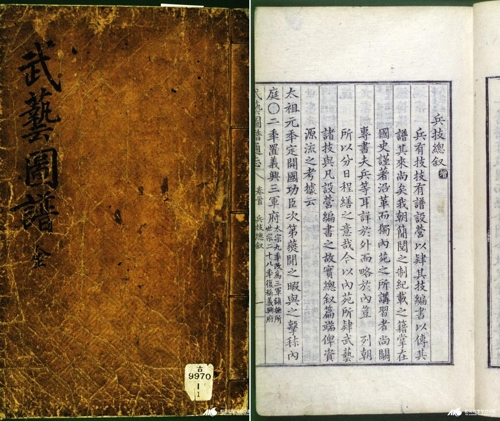 武藝圖譜 全
古
9970
1
1
兵技總叙 增
兵有技技有譜設營以肄其技編書以傳其
譜其來尚矣我朝簡閱之制紀載之籍掌在
國史謹著沿革而獨內苑之所講習者尚闕
專書夫兵等耳詳於外而略於內豈 列朝
所以分日程繕之意哉今以內苑所肄武藝
諸技與凡設營編書之故實總叙篇端俾資
源流之考據云
太祖元秊定開國功臣次第蒐閱之暇與之擊毬內
庭○二秊置義興三軍府
太宗九秊改爲三軍鎭撫所
世宗二十八秊復稱義興府
武藝圖譜通志 卷首 兵技總叙 一